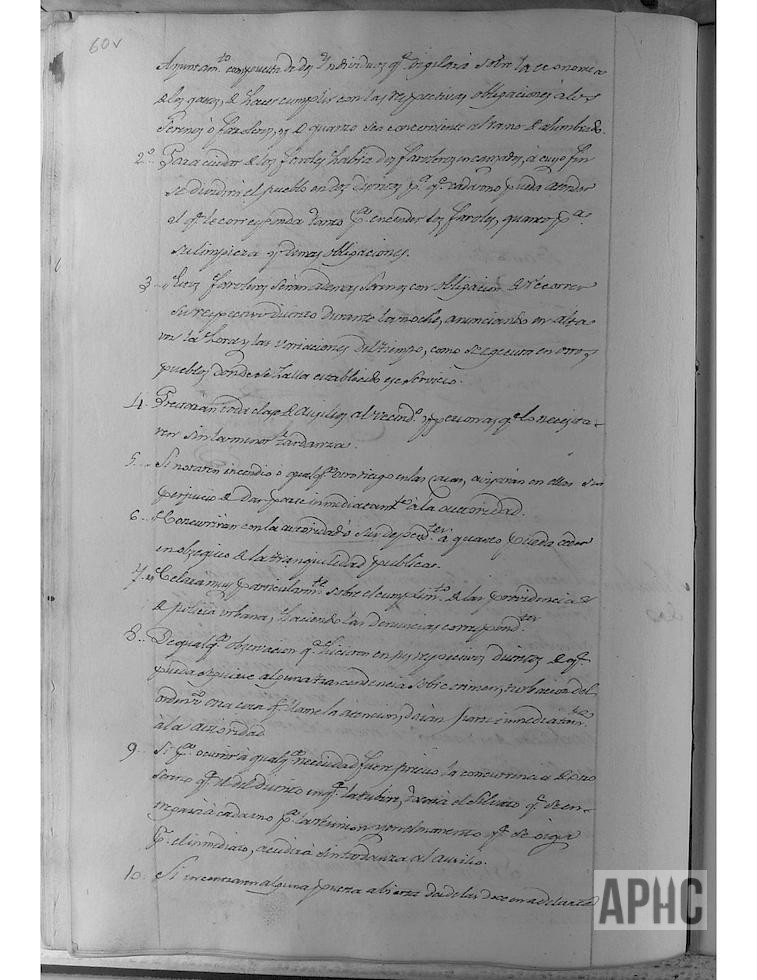 60v
Ayuntam.to compuesta de dos Individuos q.e vigilará sobre la economia
de los gastos, de hacer cumplir con las respectivas obligaciones á los
Serenos ó faroleros, y de quanto sea concerniente al ramo de alumbrado.
2.o Para cuidar de los faroles habrá dos faroleros encargados, á cuyo fin
se dividirá el pueblo en dos distritos p.a q.e cada uno pueda atender
al q.e le corresponda tanto p.a encender los faroles, quanto p.a
su limpieza y demas obligaciones.
3. Estos faroleros serán ademas Serenos con obligacion de recorrer
su respectivo distrito durante la noche, anunciando en alta
voz la hora y las variaciones del tiempo, como se egecuta en otros
pueblos donde se halla establecido ese servicio.
4. Prestarán toda clase de ausilios al vecind.o y personas q.e lo necesita-
ren sin la menor tardanza.
5. Si notaren incendio o qualq.r otro riesgo en las casas, avisarán en ellas sin
perjuicio de dar parte inmediatam.te á la autoridad.
6. Concurrirán con la autoridad ó sus depend.tes á quanto pueda ceder
en obsequio de la tranquilidad publica.
7. Celará muy particularm.te sobre el cumplim.to de las providencias
de policia urbana, haciendo las denuncias correspond.tes
8. De qualq.r observacion q.e hicieren en sus respectivos distritos de q.e
pueda seguirse alguna trascendencia sobre crimen, turbacion del
orden ú otra cosa q.e llame la atencion, darán parte inmediatam.te
á la autoridad
9. Si p.a ocurrir á qualq.r necesidad fuere preciso la concurrencia de otro
sereno q.e el del distrito en q.e la tubiere, tocará el silvato q.e se en-
tregará á cada uno p.a la reunion y en el momento q.e se oiga
p.r el inmediato, acudirá sin tardanza al ausilio.
10. Si encontraren alguna puerta abierta desde las doce en adelante
APHC